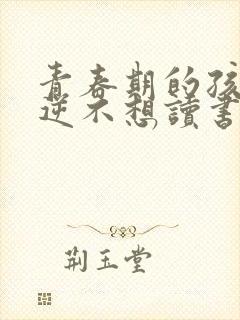 青春期的孩
逆不想讀書
荊玉堂